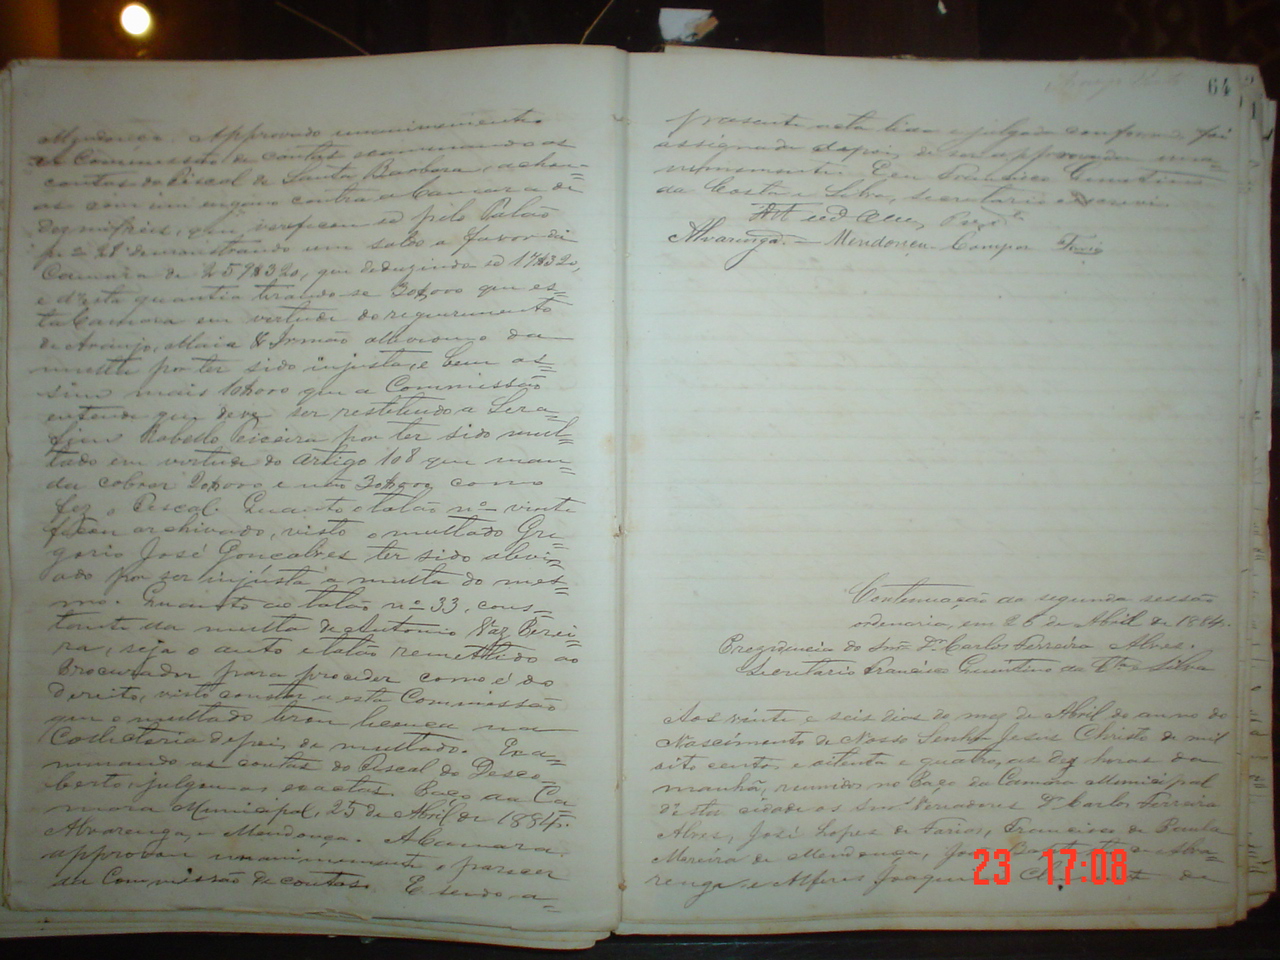 Mendonça. Approvado unanimemente
A Commissão de contas examinando as
contas do Fiscal de Santa Barbara, achou-
as com um engano contra a Camara de
dez mil reis, que verificou-se pelo Talão
nº 28 demonstrando um saldo a favor da
Camara de
e d'esta quantia tirando-se 30$000 que es=
ta Camara em virtude do requerimento
de Araujo, Maia & Irmão alliviou-os da
multa por ter sido injusta, e bem as=
sim mais 10$000 que a Commissão
entende que deve ser restituido a Sera=
fim Rabello Teixeira por ter sido mul=
tado em virtude do artigo 108 que man=
da cobrar 20$000 e não 30$000 como
fez o Fiscal. Quanto o talão nº vinte
fique archivado, visto o multado Gre=
gorio José Gonçalves ter sido alivi=
ado por ser injusta a multa do mes=
mo. Quanto ao talão nº 33, cons=
tante da multa de Antonio Vaz Perei=
ra, seja o auto e talão remettido ao
Procurador para proceder como é de
Direito, visto constar a esta Commissão
que o multado tirou licença na
Collectoria depois de multado. Exa=
minando as contas do Fiscal do Desco=
berto, julgou-as exactas. Paço da Ca=
mara Municipal, 25 de Abril de 1884.
Alvarenga, e Mendonça. A Camara
approvou unanimemente o parecer
da Commissão de contas. E sendo a=
64
presente acta lida e julgada conforme, foi
assignada depois de ser approvada una=
nimemente. Eu Francisco Quintino
da Costa e Silva, secretario a escrevi.
Alves, Presid.te
Alvarenga - Mendonça Campos Faria
Continuação da segunda sessão
ordenaria, em 26 de Abril de 1884.
Prezidencia do Snr. Dr. Carlos Ferreira Alves.
Secretario Francisco Quintino da Cta e Silva
Aos vinte e seis dias do mez de Abril do anno do
Nascimento de Nosso Senhor Jesus Christo de mil
oito centos e oitenta e quatro, as dez horas da
manhã, reunidos no Paço da Camara Municipal
d'esta cidade os Snres Vereadores Dr. Carlos Ferreira
Alves, José Lopes de Faria, Francisco de Paula
Moreira de Mendonça, João Baptista de Alva=
renga, e Alferes Joaquim de
23 17:08